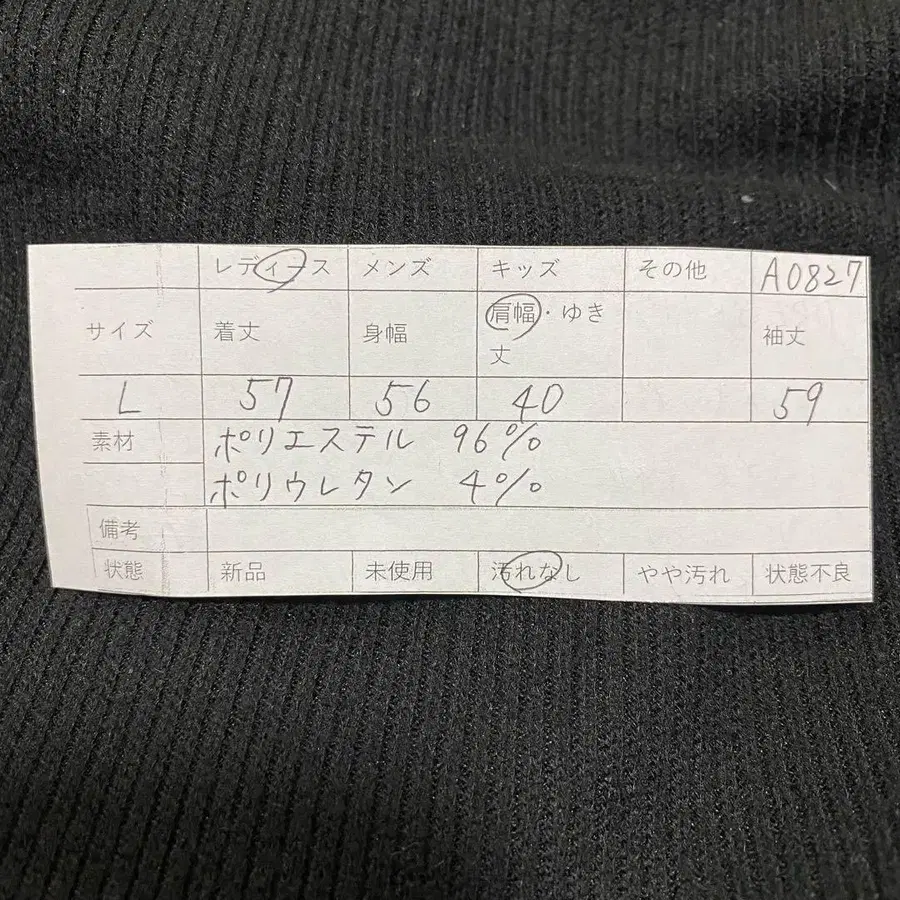 レディース メンズ キッズ その他 A0827
サイズ 着丈 身幅 肩幅・ゆき丈 袖丈
L 57 56 40 59
素材 ポリエステル 96%
ポリウレタン 4%
備考
状態 新品 未使用 汚れなし やや汚れ 状態不良